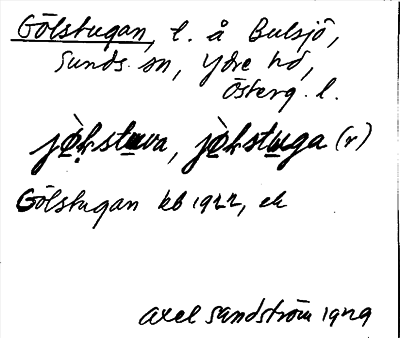 Gölstugan, l. å Bulsjö,
Sunds sn, Ydre hd,
Österg. l.
jö̀lstuva, jö̀lstuga (r)
Gölstugan kb 1922, ek
Axel Sandström 1929